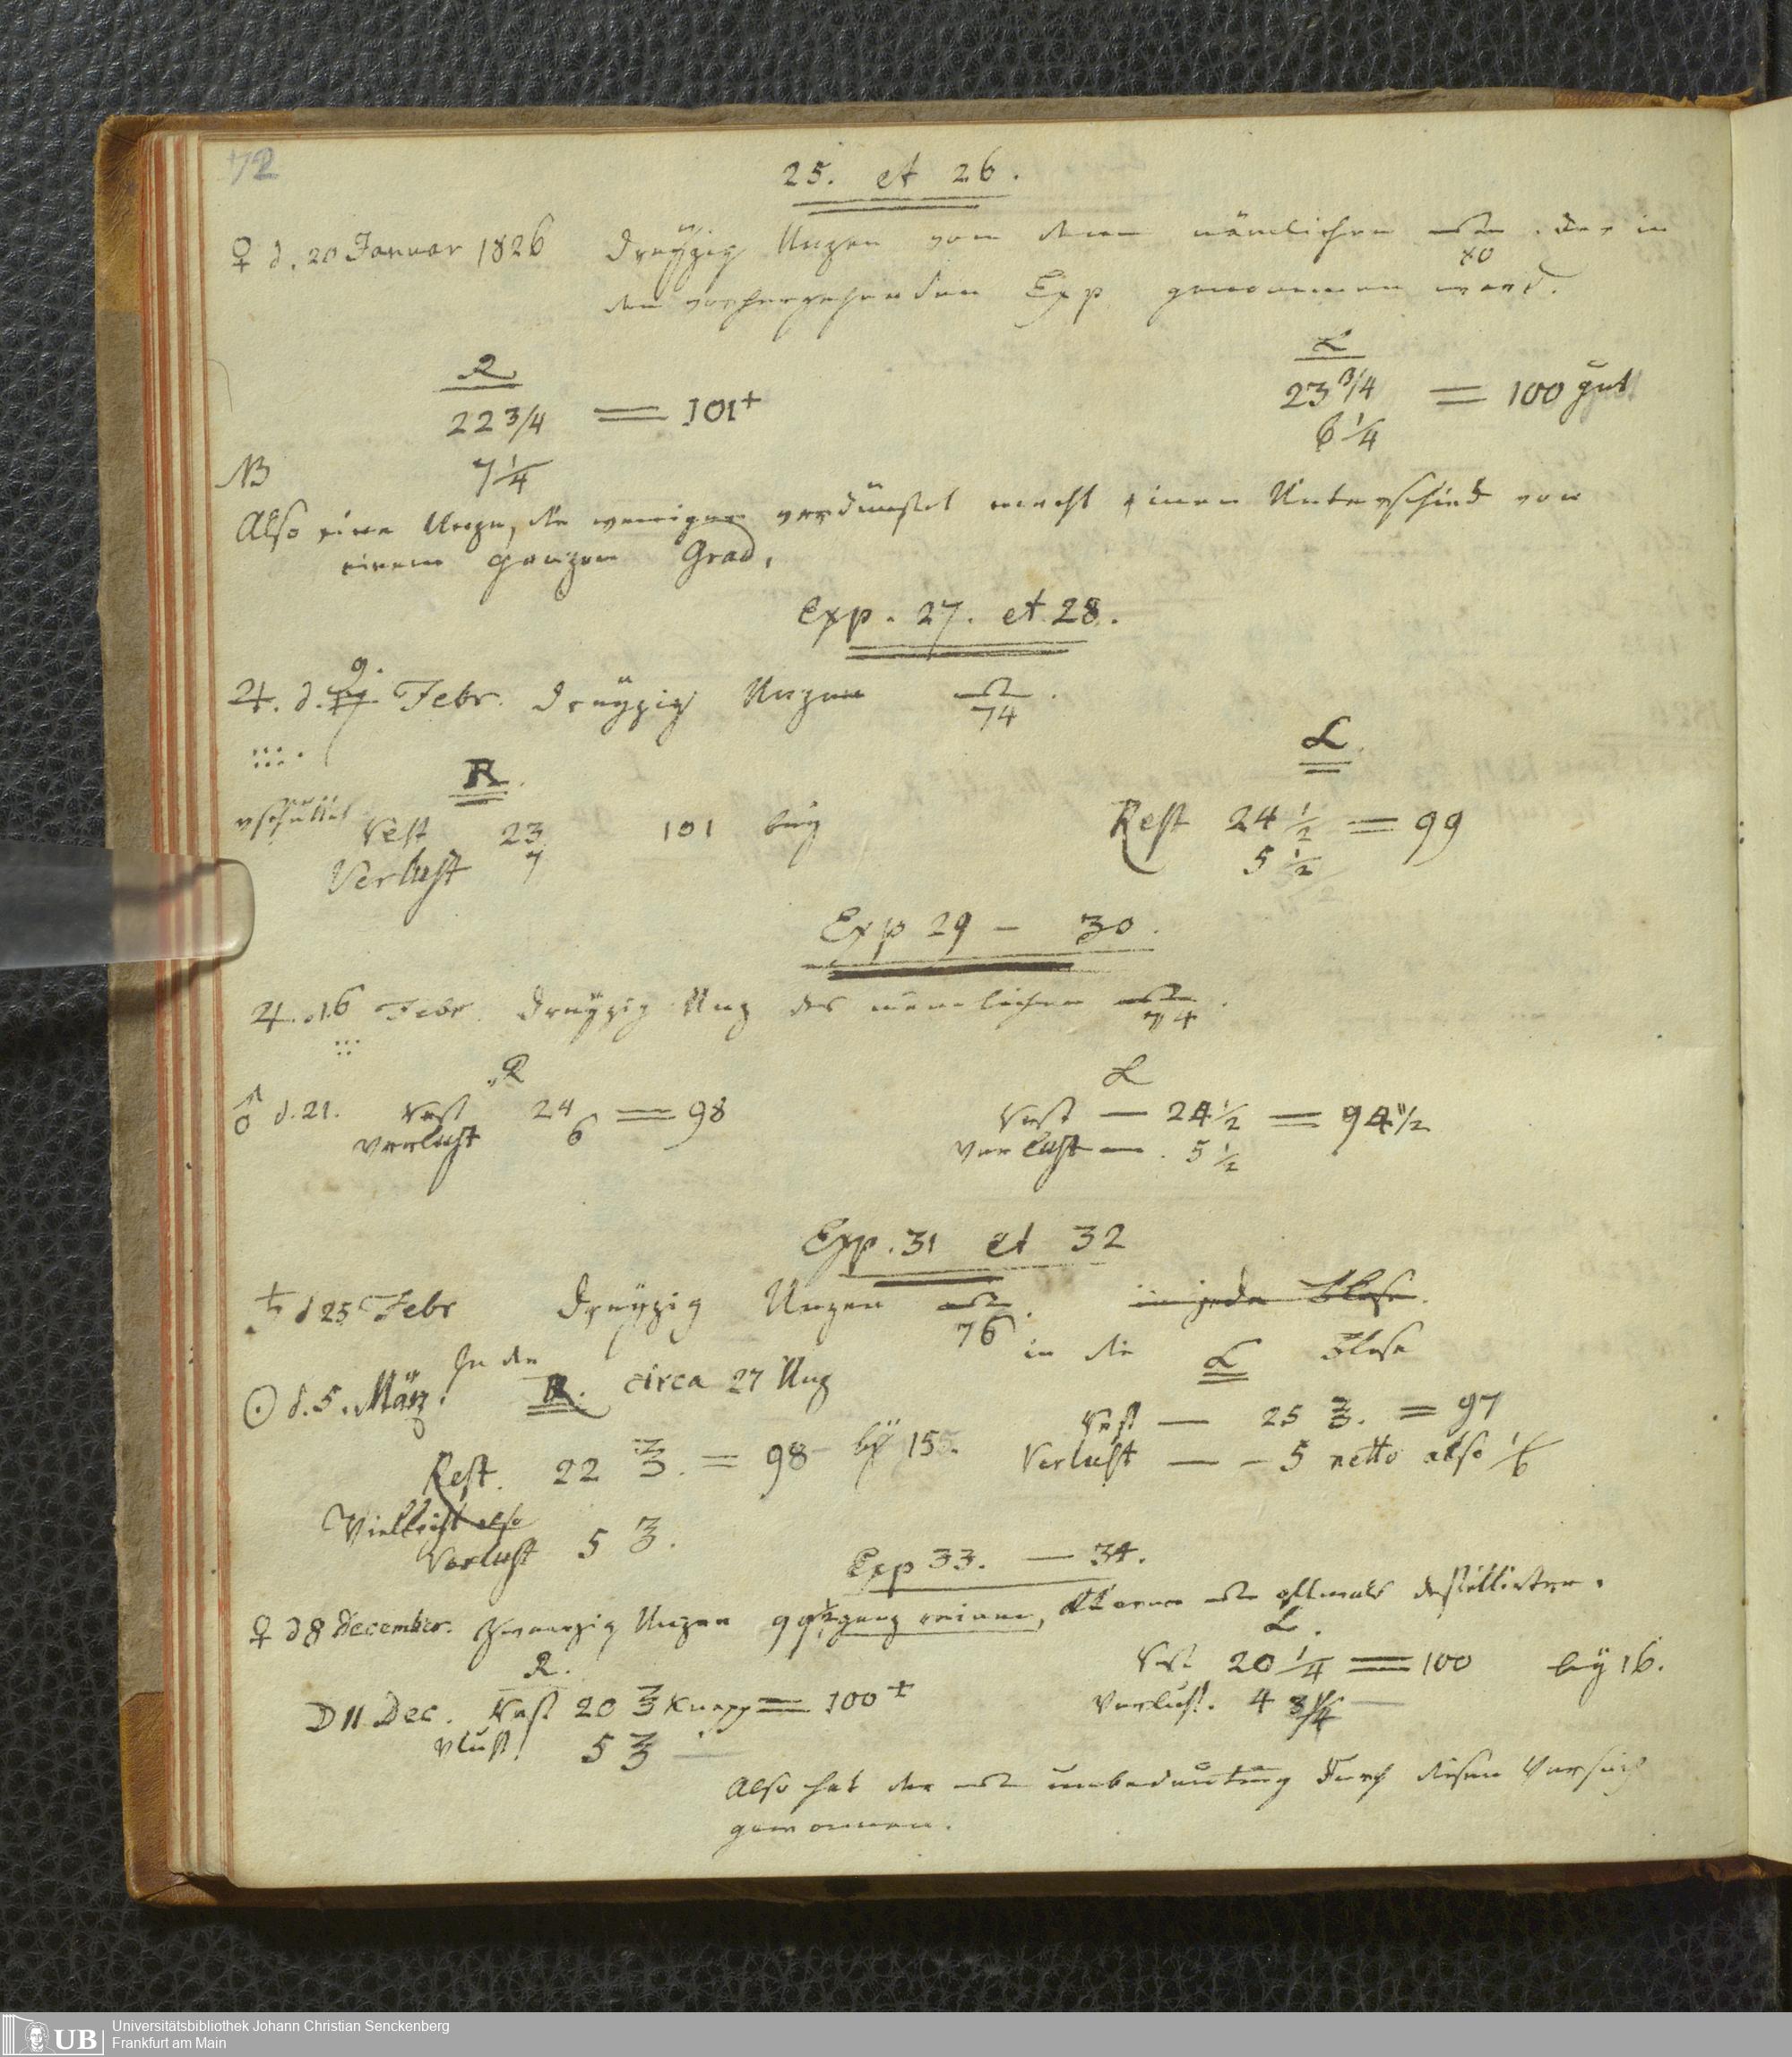 72
25. et 26.
♀ d. 20 Januar 1826 dreyßig Unzen von dem nämlichen 80 der in
den vorhergehenden Exp genommen ward.
R L
22 3/4 = 101+ 23 3/4 = 100 gut
NB 7 1/4 6 1/4
Also eine Unze, die weniger verdünstet macht einen Unterschied von
einem ganzen Grad,
Exp. 27. et 28.
♃. d. 9. Febr. dreyßig Unzen 74.
R. L.
Rest 23 101 bey Rest 24 1/2 = 99
Verlust 7 5 1/2
Exp 29 – 30.
♃. 16 Febr. dreyßig Unz des nämlichen 74.
R L
♂ d. 21. Rest 24 = 98 Rest — 24 1/2 = 94 1/2
Verlust 6 Verlust — 5 1/2
Exp. 31 et 32
♄ d 25 Febr dreyßig Unzen 76. in jede Blase.
in die L Blase
☉ d. 5. März. In die R. circa 27 Unz
Rest — 25 ℥. = 97
Rest. 22 ℥. = 98 – bey 15 Verlust — – 5 netto also 1/6
Vielleicht also
Verlust 5 ℥.
Exp 33. — 34.
♀ d 8 December. Zwanzig Unzen 99 ganz reinen, oftmals destillirter.
R. L.
Rest 20 1/4 = 100 bey 16.
D 11 Dec. Rest 20 ℥ knapp = 100 ± Verlust. 4 3/4
Vlust 5 ℥
Also hat der unbedeutend durch diesen Versuch
gewonnen.
Universitätsbibliothek Johann Christian Senckenberg
Frankfurt am Main
UB